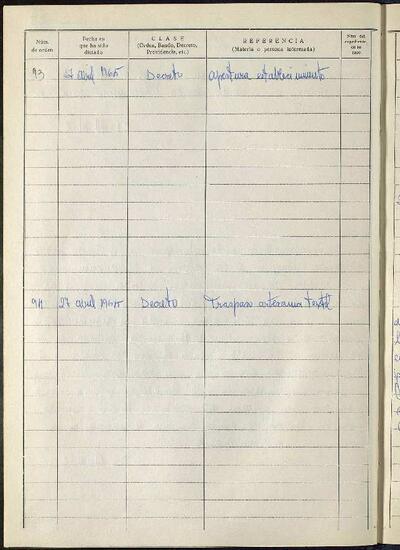 Núm. de orden
Fecha en que ha sido dictado
CLASE
(Orden, Bando, Decreto, Providencia, etc.)
REFERENCIA
(Materia o persona interesada)
Núm. del expediente en su caso
93 27 abril 1965 Decreto apertura establecimiento
94 27 abril 1965 Decreto Traspaso artesania textil